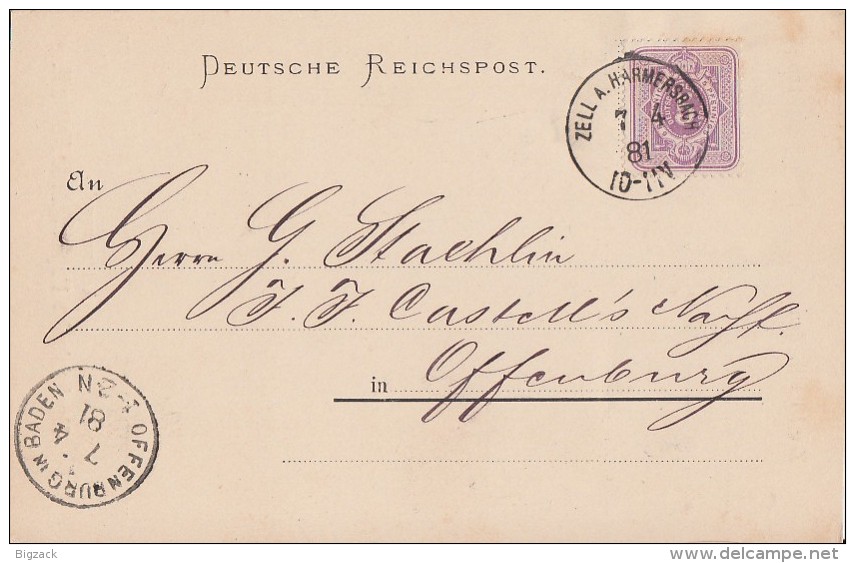 DEUTSCHE REICHSPOST.
ZELL A. HARMERSBACH
7 4
81
10-11V
An
Herrn G. Staehlin
J. J. Castell's Nachf.
in Offenburg
OFFENBURG IN BADEN
7 4
81
1-2N
Bigzack
www.delcampe.net